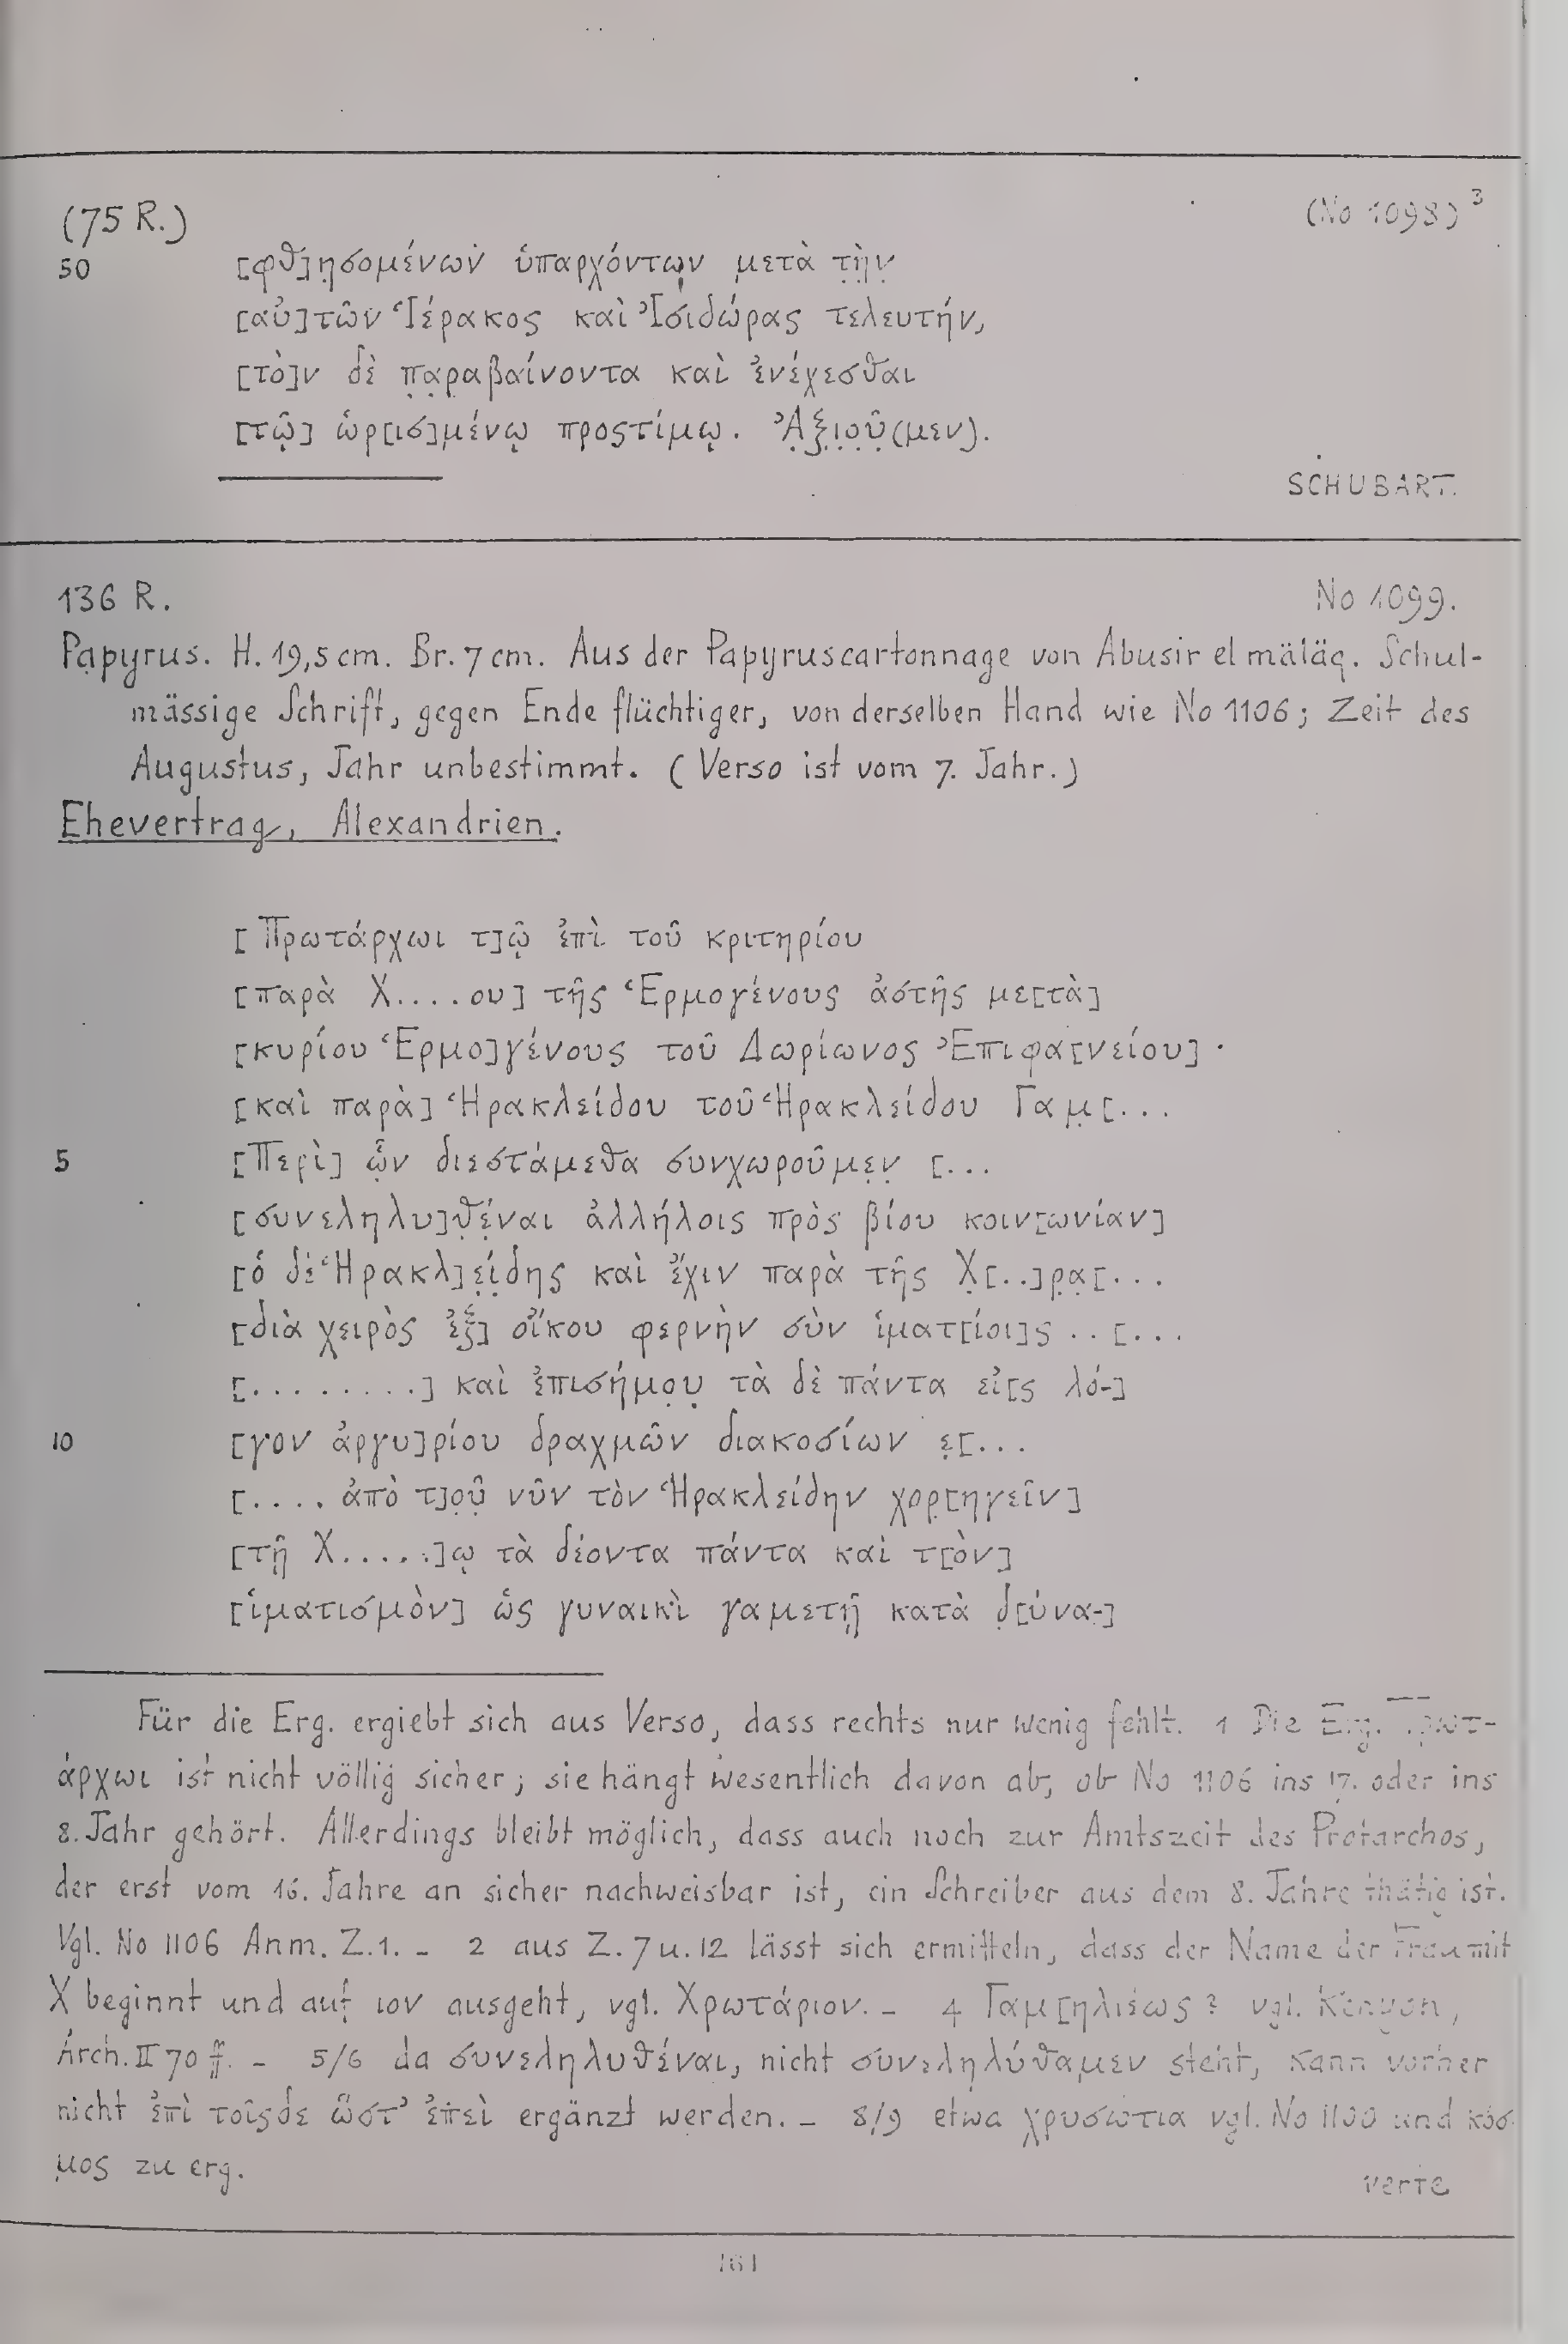 (75 R.) (No 1098) 3
50 [φθ]η̣σομένων ὑπαρχόντων μετὰ τ̣ὴ̣ν̣
[αὐ]τῶν Ἱέρακος καὶ Ἰσιδώρας τελευτήν,
[τὸ]ν δὲ π̣α̣ραβαίνοντα καὶ ἐνέχεσθαι
[τῷ] ὡρ[ισ]μένῳ προστίμῳ. Ἀ̣ξ̣ι̣ο̣ῦ̣(μεν).
SCHUBART.
136 R. No 1099.
Papyrus. H. 19,5 cm. Br. 7 cm. Aus der Papyruscartonnage von Abusir el mäläq. Schul-
mässige Schrift, gegen Ende flüchtiger, von derselben Hand wie No 1106; Zeit des
Augustus, Jahr unbestimmt. (Verso ist vom 7. Jahr.)
Ehevertrag, Alexandrien.
[Πρωτάρχωι τ]ῷ ἐπὶ τοῦ κριτηρίου
[παρὰ Χ....ου] τῆς Ἑρμογένους ἀστῆς με[τὰ]
[κυρίου Ἑρμο]γένους τοῦ Δωρίωνος Ἐπιφα[νείου]·
[καὶ παρὰ] Ἡρακλείδου τοῦ Ἡρακλείδου Γαμ̣[...
5 [Περὶ] ὧν διεστάμεθα συνχωροῦμε̣ν̣ [...
[συνεληλυ]θ̣έ̣ναι ἀλλήλοις πρὸς βίου κοιν[ωνίαν]
[ὁ δὲ Ἡρακλ]ε̣ί̣δης καὶ ἔχιν παρὰ τῆς Χ̣[..]ρ̣α̣[...
[διὰ χειρὸς ἐξ] οἴκου φερνὴν σὺν ἱματ[ίοι]ς ..[...
[.........] καὶ ἐπισήμο̣υ̣ τὰ δὲ πάντα εἰ[ς λό-]
10 [γον ἀργυ]ρίου δραχμῶν διακοσίων ε̣[...
[.... ἀπὸ τ]ο̣ῦ̣ νῦν τὸν Ἡρακλείδην χορ̣[ηγεῖν]
[τῇ Χ......]ῳ τὰ δέοντα πάντα καὶ τ[ὸν]
[ἱματισμὸν] ὡς γυναικὶ γαμετῇ κατὰ δ̣[ύνα-]
Für die Erg. ergiebt sich aus Verso, dass rechts nur wenig fehlt. 1 Die Erg. Πρωτ-
άρχωι ist nicht völlig sicher; sie hängt wesentlich davon ab, ob No 1106 ins 17. oder ins
8. Jahr gehört. Allerdings bleibt möglich, dass auch noch zur Amtszeit des Protarchos,
der erst vom 16. Jahre an sicher nachweisbar ist, ein Schreiber aus dem 8. Jahre thätig ist.
Vgl. No 1106 Anm. Z. 1. – 2 aus Z. 7 u. 12 lässt sich ermitteln, dass der Name der Frau mit
Χ beginnt und auf ιον ausgeht, vgl. Χρωτάριον. – 4 Γαμ[ηλιέως? vgl. Kenyon,
Arch. II 70 ff. – 5/6 da συνεληλυθέναι, nicht συνεληλύθαμεν steht, kann vorher
nicht ἐπὶ τοῖςδε ὥστ' ἐπεὶ ergänzt werden. – 8/9 etwa χρυσώτια vgl. No 1100 und κόσ-
μος zu erg. verte
161